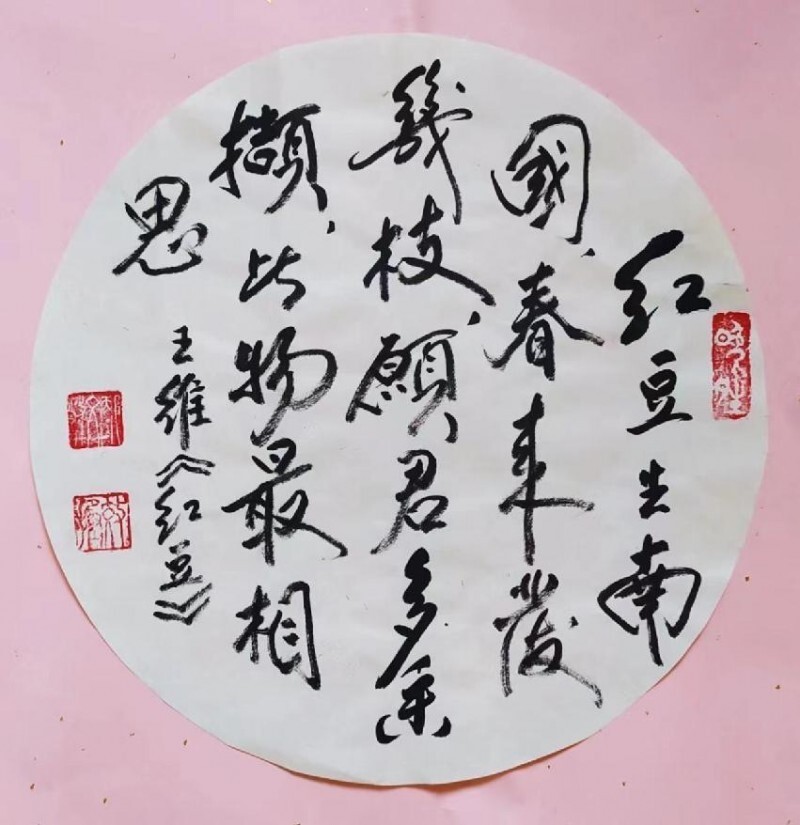 红豆生南
國、春来發
幾枝、願君多采
擷、此物最相
思
王維《红豆》